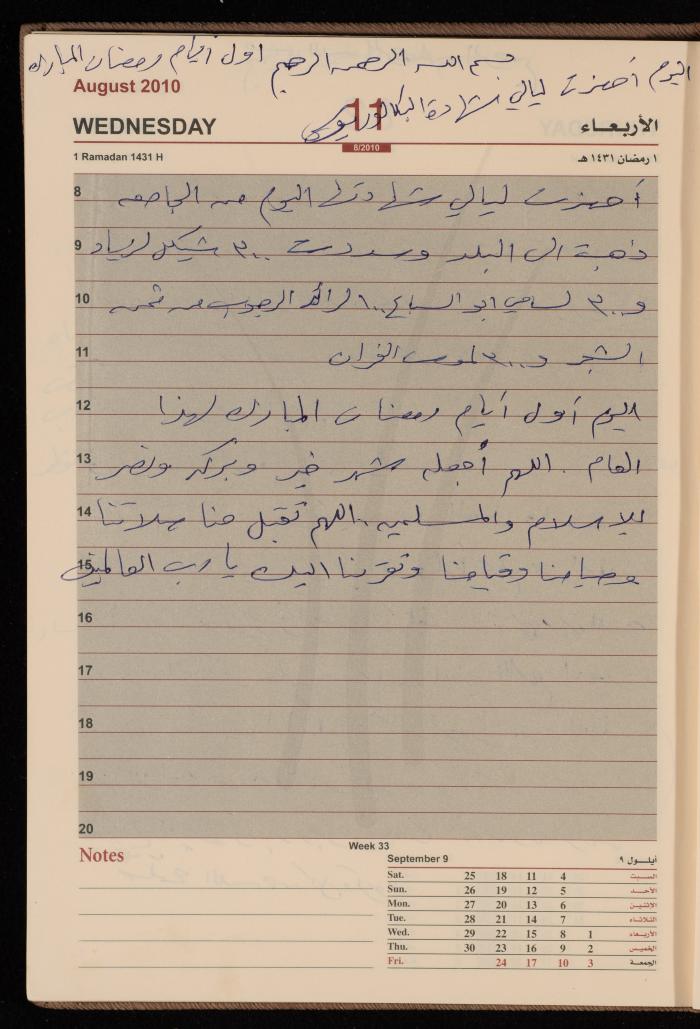 بسم الله الرحمن الرحيم اول أيام رمضان المبارك
اليوم أحضرت ليالي شهادة البكالوريوس
August 2010
WEDNESDAY 11 الأربعاء
8/2010
1 Ramadan 1431 H ١ رمضان ١٤٣١ هـ
8 أحضرت ليالي شهادتها اليوم من الجامعه
9 ذهبة الى البلد وسددت ٣٠٠ شيكل لزياد
10 و ٣٠٠ لسامي ابو السباع ١٠٠ لرائد الرجوب من ثمن
11 الشجر و ٣٠٠
12 اليوم أول أيام رمضان المبارك لهذا
13 العام . اللهم أجعله شهر خير وبركه ونصر
14 للإسلام والمسلمين . اللهم تقبل منا صلاتنا
15 وصيامنا وقيامنا وتقربنا اليك يا رب العالمين
16
17
18
19
20
Notes
Week 33
September 9 أيلول ٩
Sat. 25 18 11 4 السبت
Sun. 26 19 12 5 الأحد
Mon. 27 20 13 6 الاثنين
Tue. 28 21 14 7 الثلاثاء
Wed. 29 22 15 8 1 الأربعاء
Thu. 30 23 16 9 2 الخميس
Fri. 24 17 10 3 الجمعة